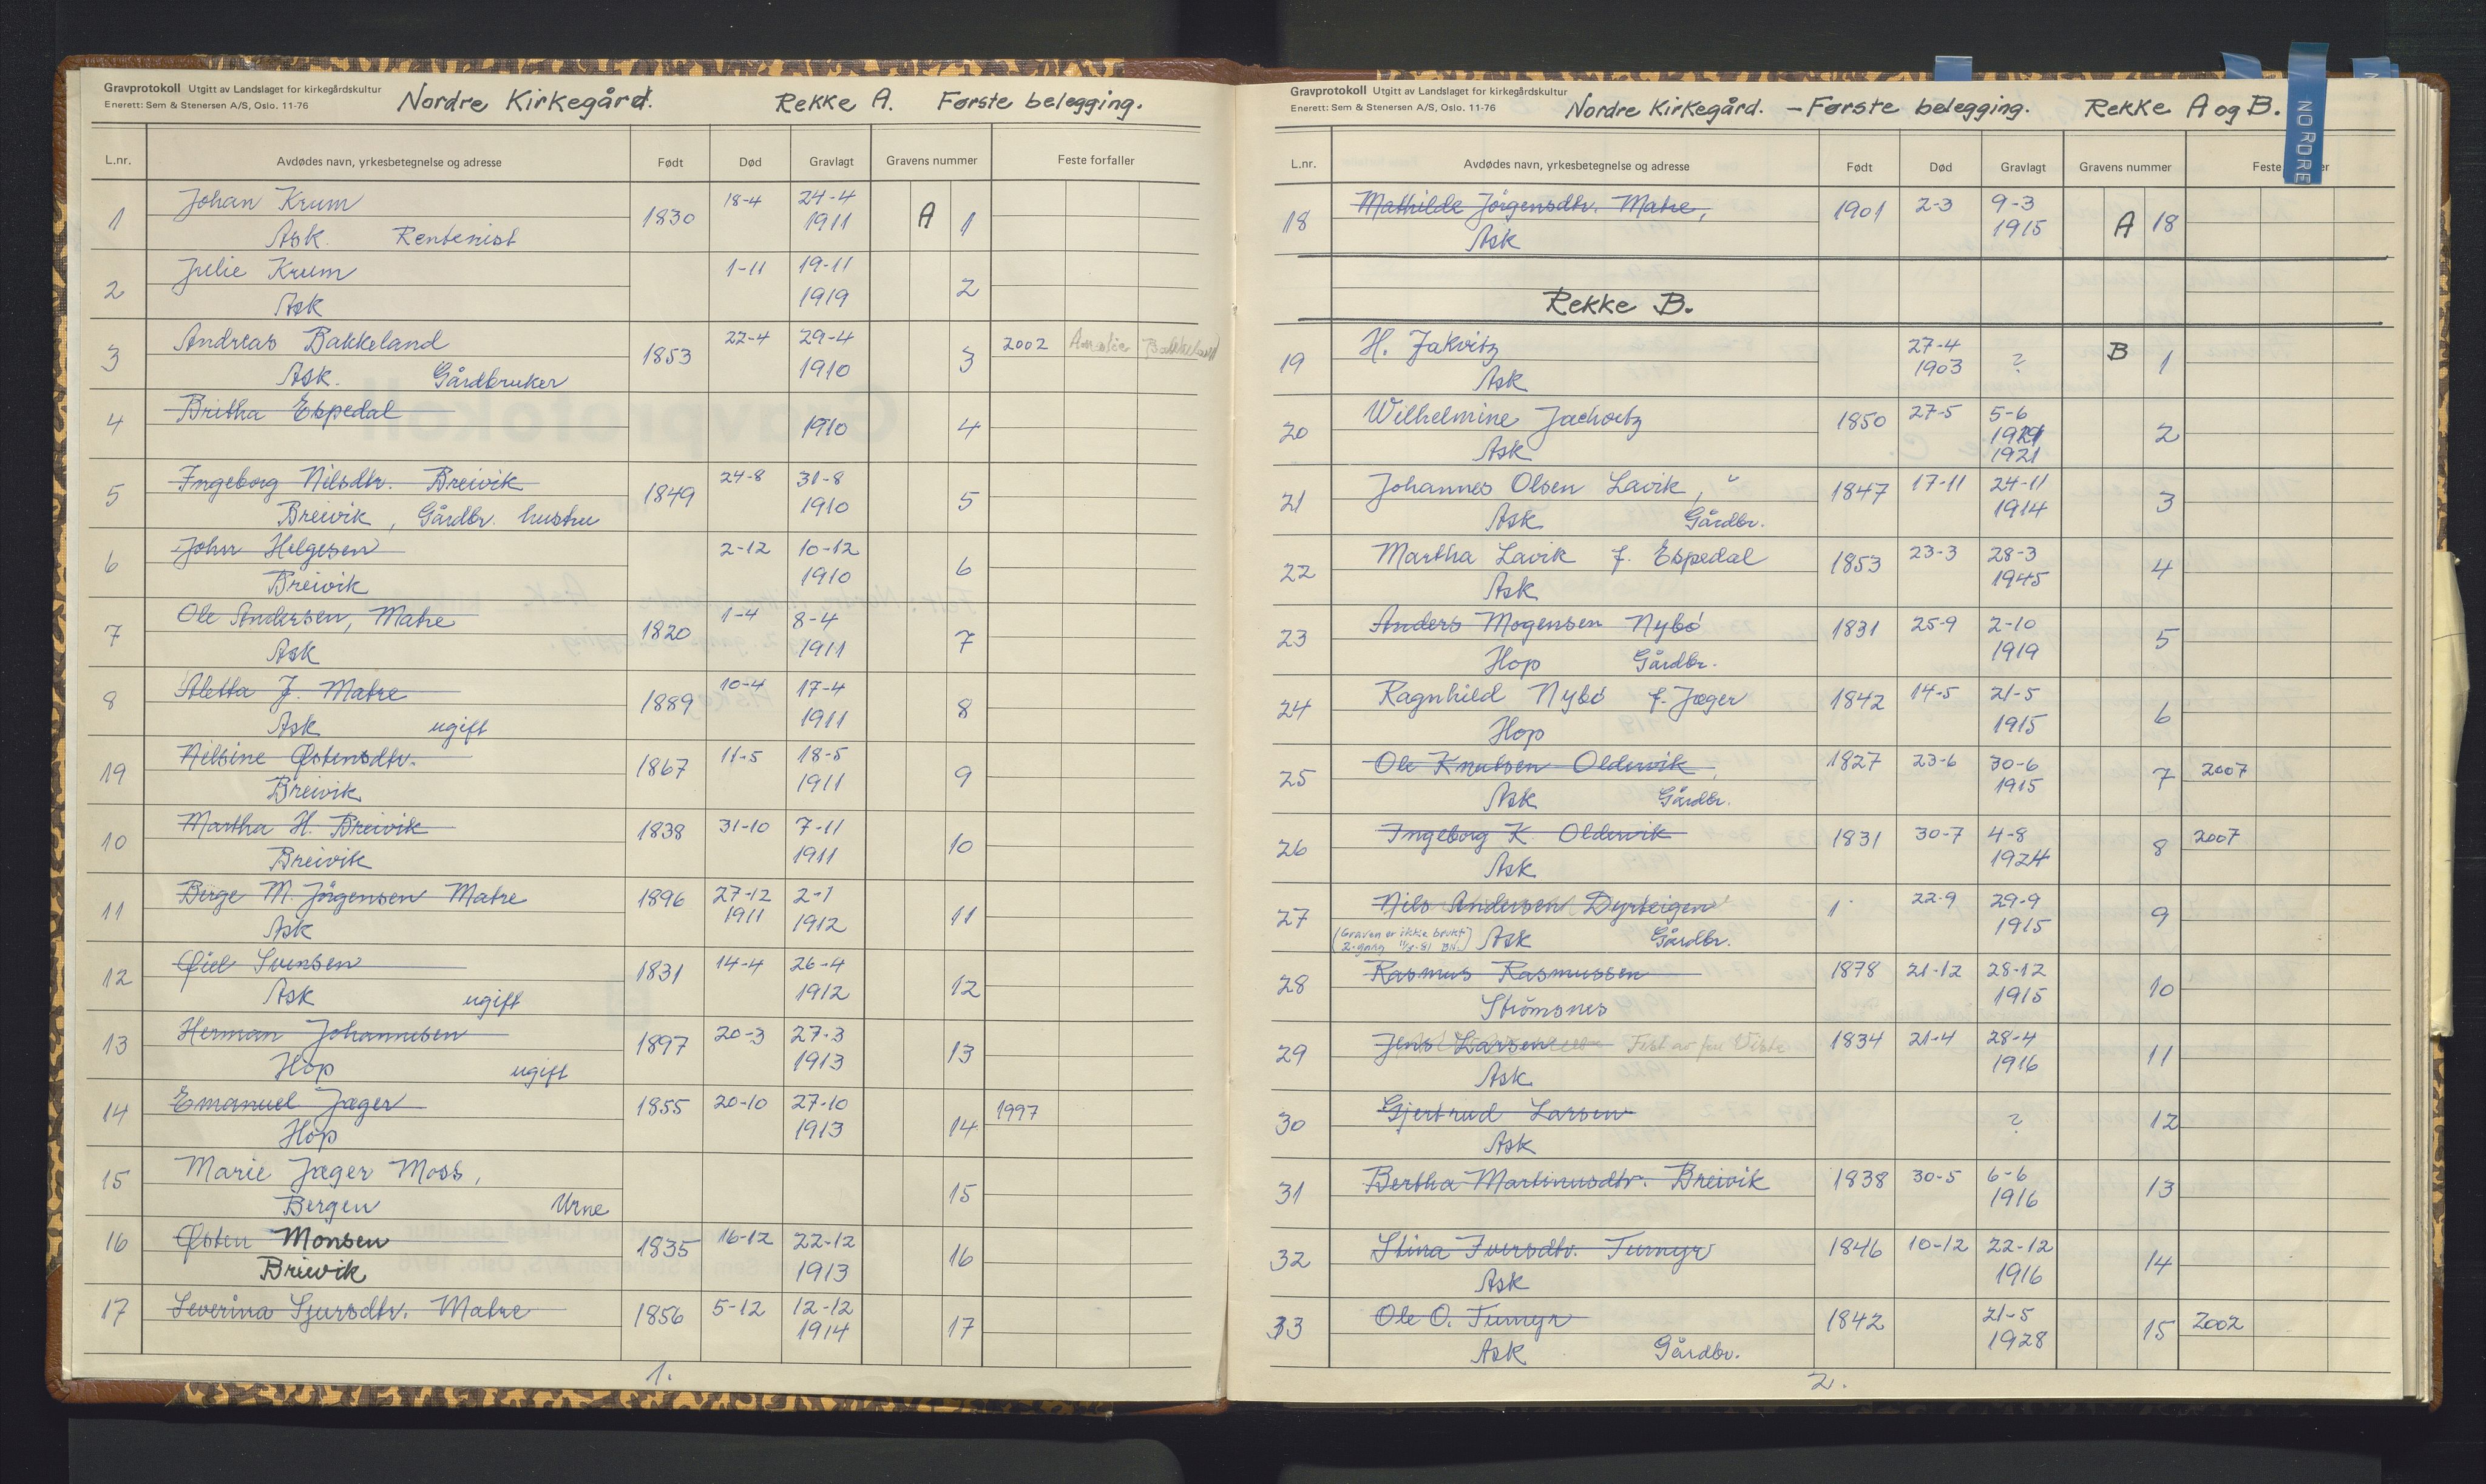 Gravprotokoll Utgitt av Landslaget for kirkegårdskultur
Enerett: Sem & Stenersen A/S, Oslo. 11-76
Nordre Kirkegård. Rekke A. Første belegging.
L.nr. Avdødes navn, yrkesbetegnelse og adresse Født Død Gravlagt Gravens nummer Feste forfaller
1 Johan Krum 1830 18-4 24-4 1911 A 1
Ask. Rentenist
2 Julie Krum 1-11 19-11 1919 2
Ask
3 Andreas Bakkeland 1853 22-4 29-4 1910 3 2002 Amalie Bakkeland
Ask. Gårdbruker
4 Britha Espedal 1910 4
5 Ingeborg Nilsdtr. Breivik 1849 24-8 31-8 1910 5
Breivik, Gårdbr. hustru
6 John Helgesen 2-12 10-12 1910 6
Breivik
7 Ole Andersen, Matre 1820 1-4 8-4 1911 7
Ask
8 Aletta J. Matre 1889 10-4 17-4 1911 8
Ask ugift
19 Nilsine Østensdtr. 1867 11-5 18-5 1911 9
Breivik
10 Martha H. Breivik 1838 31-10 7-11 1911 10
Breivik
11 Birge M. Jörgensen Matre 1896 27-12 1911 2-1 1912 11
Ask
12 Svensen 1831 14-4 26-4 1912 12
Ask ugift
13 Herman Johannesen 1897 20-3 27-3 1913 13
Hop ugift
14 Emanuel Jæger 1855 20-10 27-10 1913 14 1997
Hop
15 Marie Jæger Moss, 15
Bergen Urne
16 Østen Monsen 1835 16-12 22-12 1913 16
Breivik
17 Severina Sjursdtr. Matre 1856 5-12 12-12 1914 17
1.
Gravprotokoll Utgitt av Landslaget for kirkegårdskultur
Enerett: Sem & Stenersen A/S, Oslo. 11-76
Nordre Kirkegård. - Første belegging. Rekke A og B.
NORDRE
L.nr. Avdødes navn, yrkesbetegnelse og adresse Født Død Gravlagt Gravens nummer Feste
18 Mathilde Jörgensdtr. Matre, 1901 2-3 9-3 1915 A 18
Ask
Rekke B.
19 H. Jakvitz 27-4 1903 ? B 1
Ask
20 Wilhelmine Jachvitz 1850 27-5 5-6 1921 2
Ask
21 Johannes Olsen Lavik, " 1847 17-11 24-11 1914 3
Ask Gårdbr.
22 Martha Lavik f. Espedal 1853 23-3 28-3 1945 4
Ask
23 Anders Mogensen Nybö 1831 25-9 2-10 1919 5
Hop Gårdbr.
24 Ragnhild Nybö f. Jæger 1842 14-5 21-5 1915 6
Hop
25 Ole Knutsen Oldervik, 1827 23-6 30-6 1915 7 2007
Ask Gårdbr.
26 Ingeborg K. Oldervik 1831 30-7 4-8 1924 8 2007
Ask
27 Nils Andersen Dyrteigen 1 22-9 29-9 1915 9
(Graven er ikke brukt 2. gang 11/5-81 BN.) Ask Gårdbr.
28 Rasmus Rasmussen 1878 21-12 28-12 1915 10
Strömsnes
29 Jens Larsen Fest av fru Viste 1834 21-4 28-4 1916 11
Ask
30 Gjertrud Larsen ? 12
Ask
31 Bertha Martinusdtr. Breivik 1838 30-5 6-6 1916 13
32 Stina Iversdtr. Tumyr 1846 10-12 22-12 1916 14
Ask
33 Ole O. Tumyr 1842 21-5 1928 15 2002
Ask Gårdbr.
2.